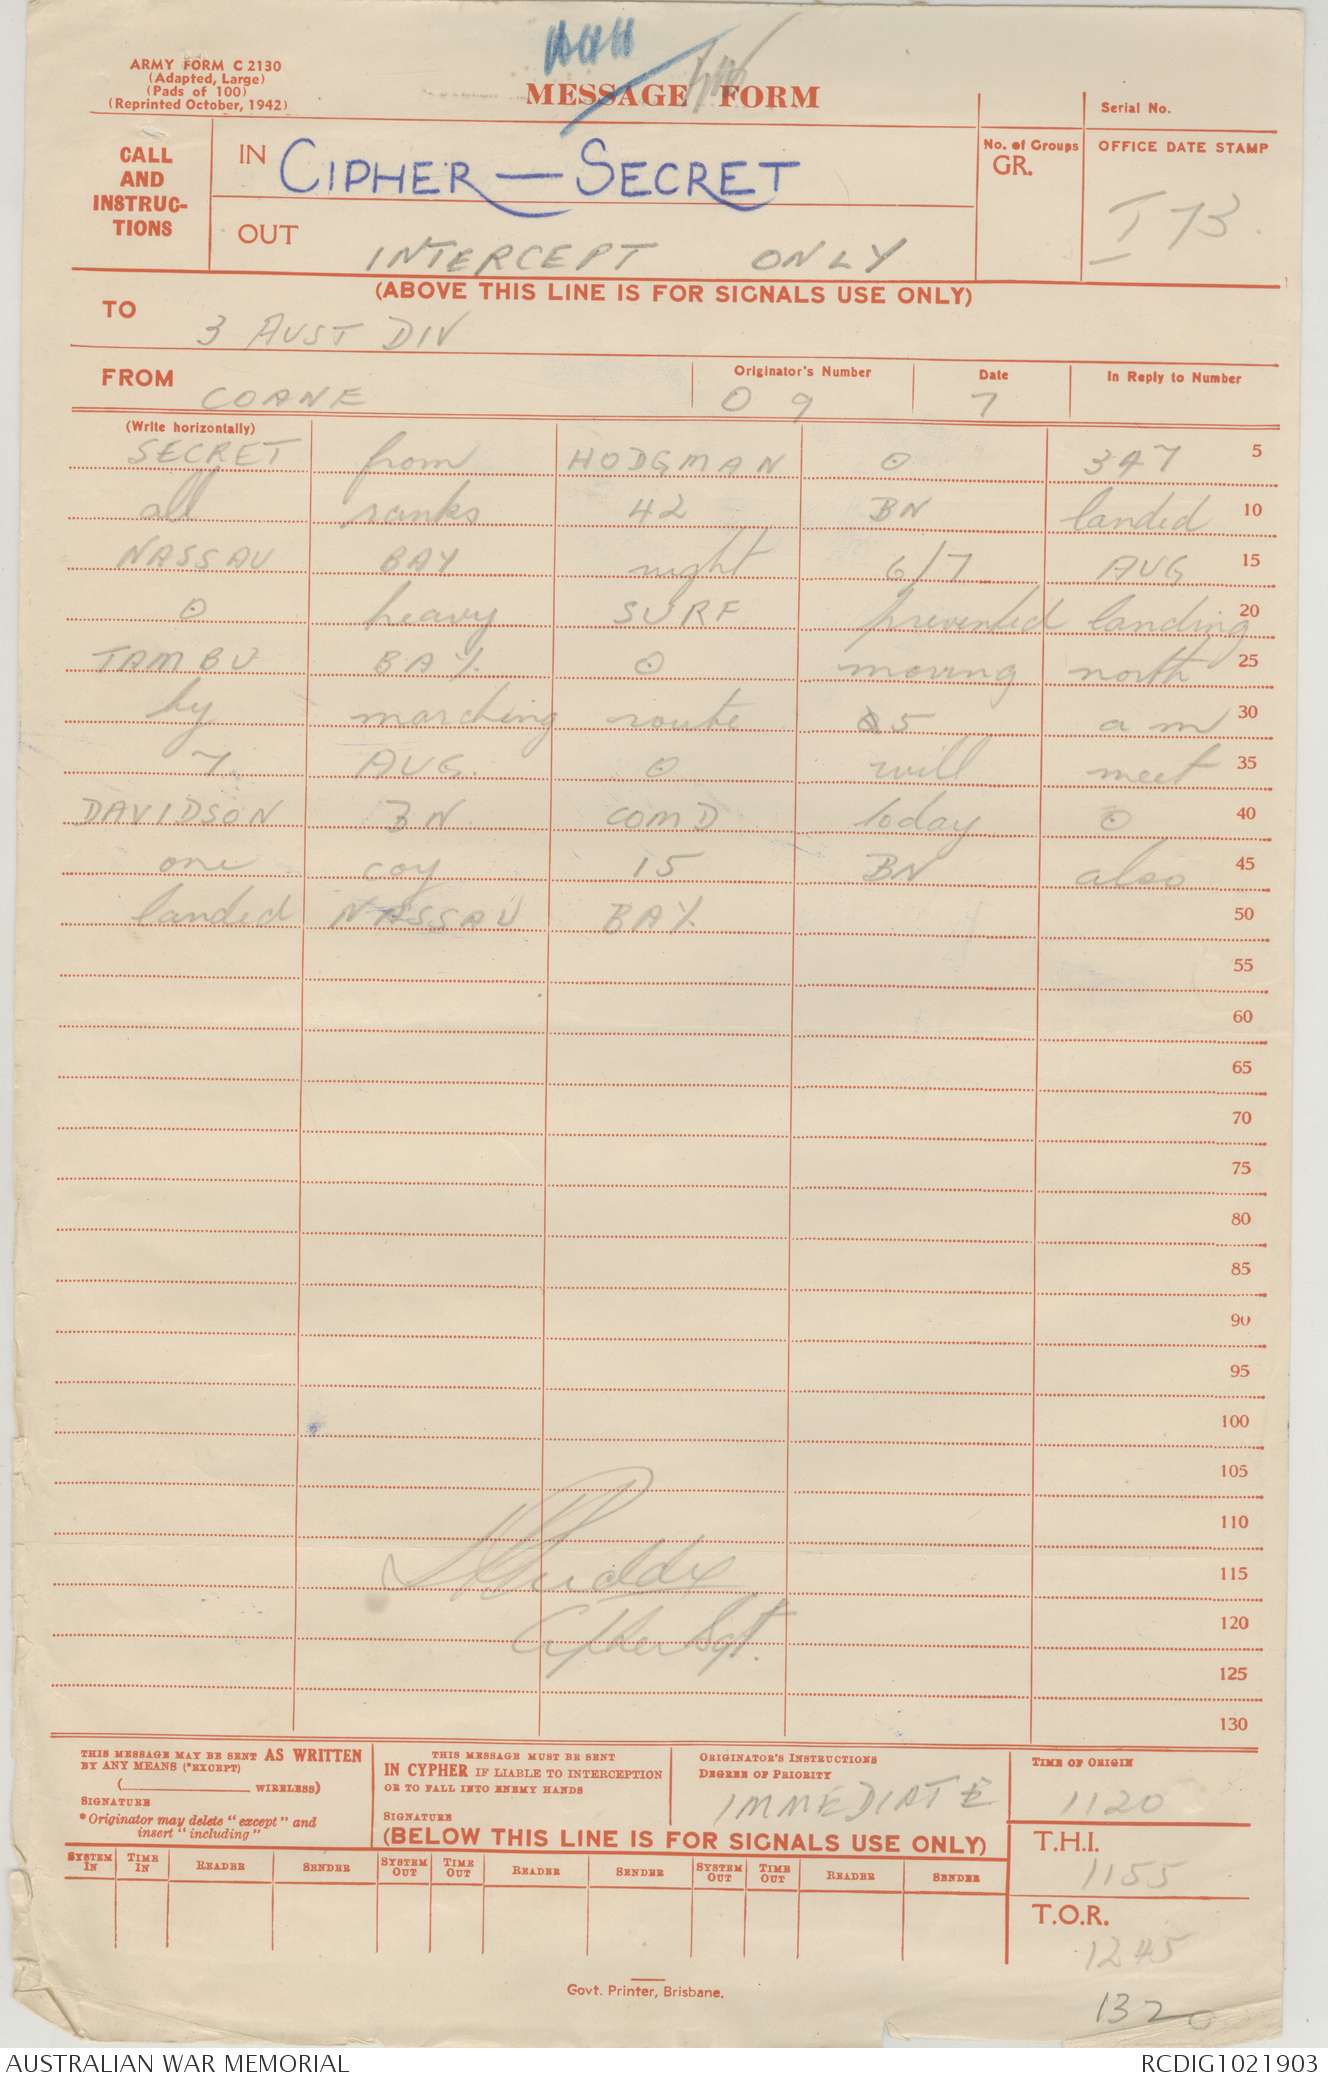 ARMY FORM C 2130
(Adapted, Large)
(Pads of 100)
(Reprinted October, 1942)
MESSAGE FORM
Serial No.
CALL AND INSTRUC-TIONS
IN CIPHER — SECRET
No. of Groups
GR.
OFFICE DATE STAMP
I 73.
OUT
INTERCEPT ONLY
(ABOVE THIS LINE IS FOR SIGNALS USE ONLY)
TO 3 AUST DIV
FROM COANE
Originator's Number
O 9
Date
7
In Reply to Number
(Write horizontally)
SECRET from HODGMAN ⊙ 347 5
all ranks 42 BN landed 10
NASSAU BAY night 6/7 AUG 15
⊙ heavy SURF prevented landing 20
TAMBU BAY ⊙ moving north 25
by marching route 5 am 30
7 AUG. ⊙ will meet 35
DAVIDSON BN COMD today ⊙ 40
one coy 15 BN also 45
landed NASSAU BAY 50
55
60
65
70
75
80
85
90
95
100
105
110
115
Cipher Sgt. 120
125
130
THIS MESSAGE MAY BE SENT AS WRITTEN
BY ANY MEANS (*EXCEPT)
( WIRELESS)
SIGNATURE
* Originator may delete "except" and
insert "including"
THIS MESSAGE MUST BE SENT
IN CYPHER IF LIABLE TO INTERCEPTION
OR TO FALL INTO ENEMY HANDS
SIGNATURE
ORIGINATOR'S INSTRUCTIONS
DEGREE OF PRIORITY
IMMEDIATE
TIME OF ORIGIN
1120
(BELOW THIS LINE IS FOR SIGNALS USE ONLY)
T.H.I.
1155
SYSTEM IN TIME IN READER SENDER SYSTEM OUT TIME OUT READER SENDER SYSTEM OUT TIME OUT READER SENDER
T.O.R.
1245
1320
Govt. Printer, Brisbane.
AUSTRALIAN WAR MEMORIAL
RCDIG1021903